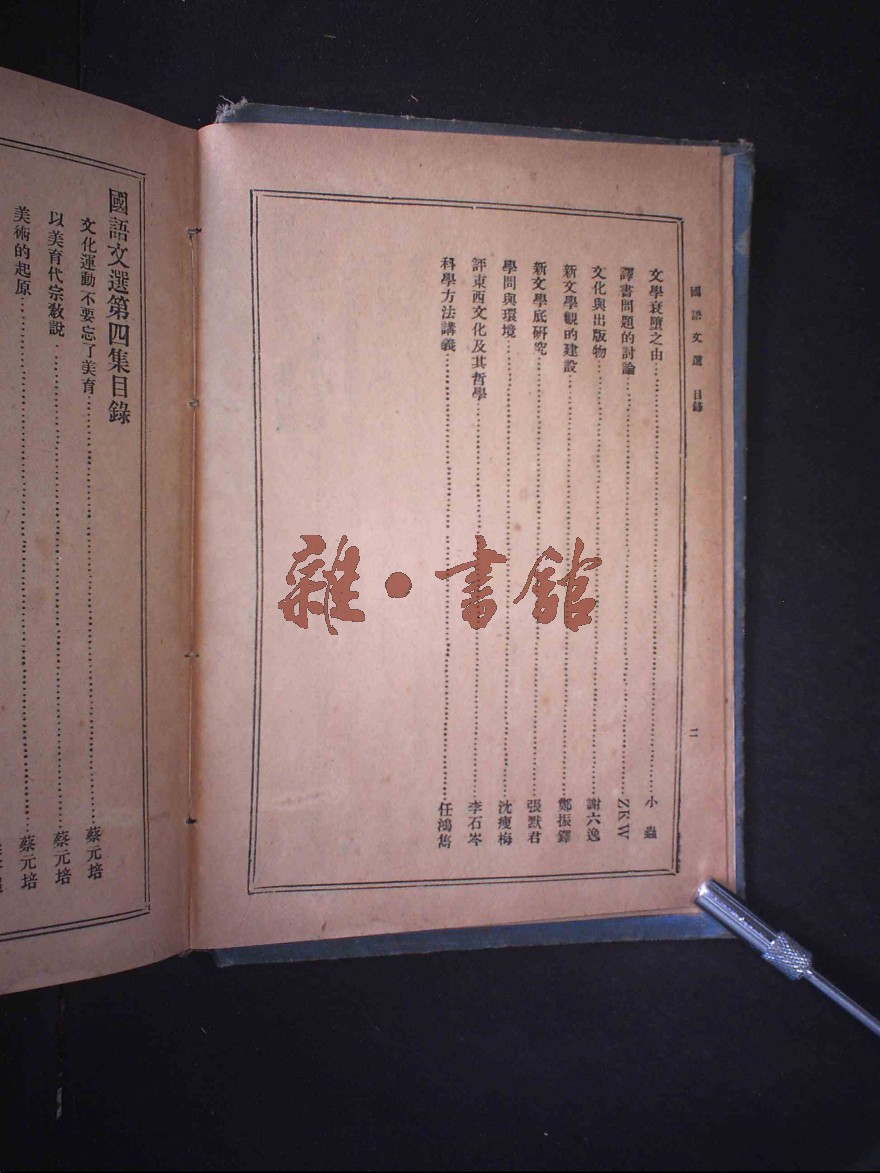 國語文選 目錄 二
文學衰墮之由……小蟲
譯書問題的討論……ZKW
文化與出版物……謝六逸
新文學觀的建設……鄭振鐸
新文學底硏究……張默君
學問與環境……沈瘦梅
評東西文化及其哲學……李石岑
科學方法講義……任鴻雋
國語文選第四集目錄
文化運動不要忘了美育……蔡元培
以美育代宗敎說……蔡元培
美術的起原……蔡元培
雜·書館